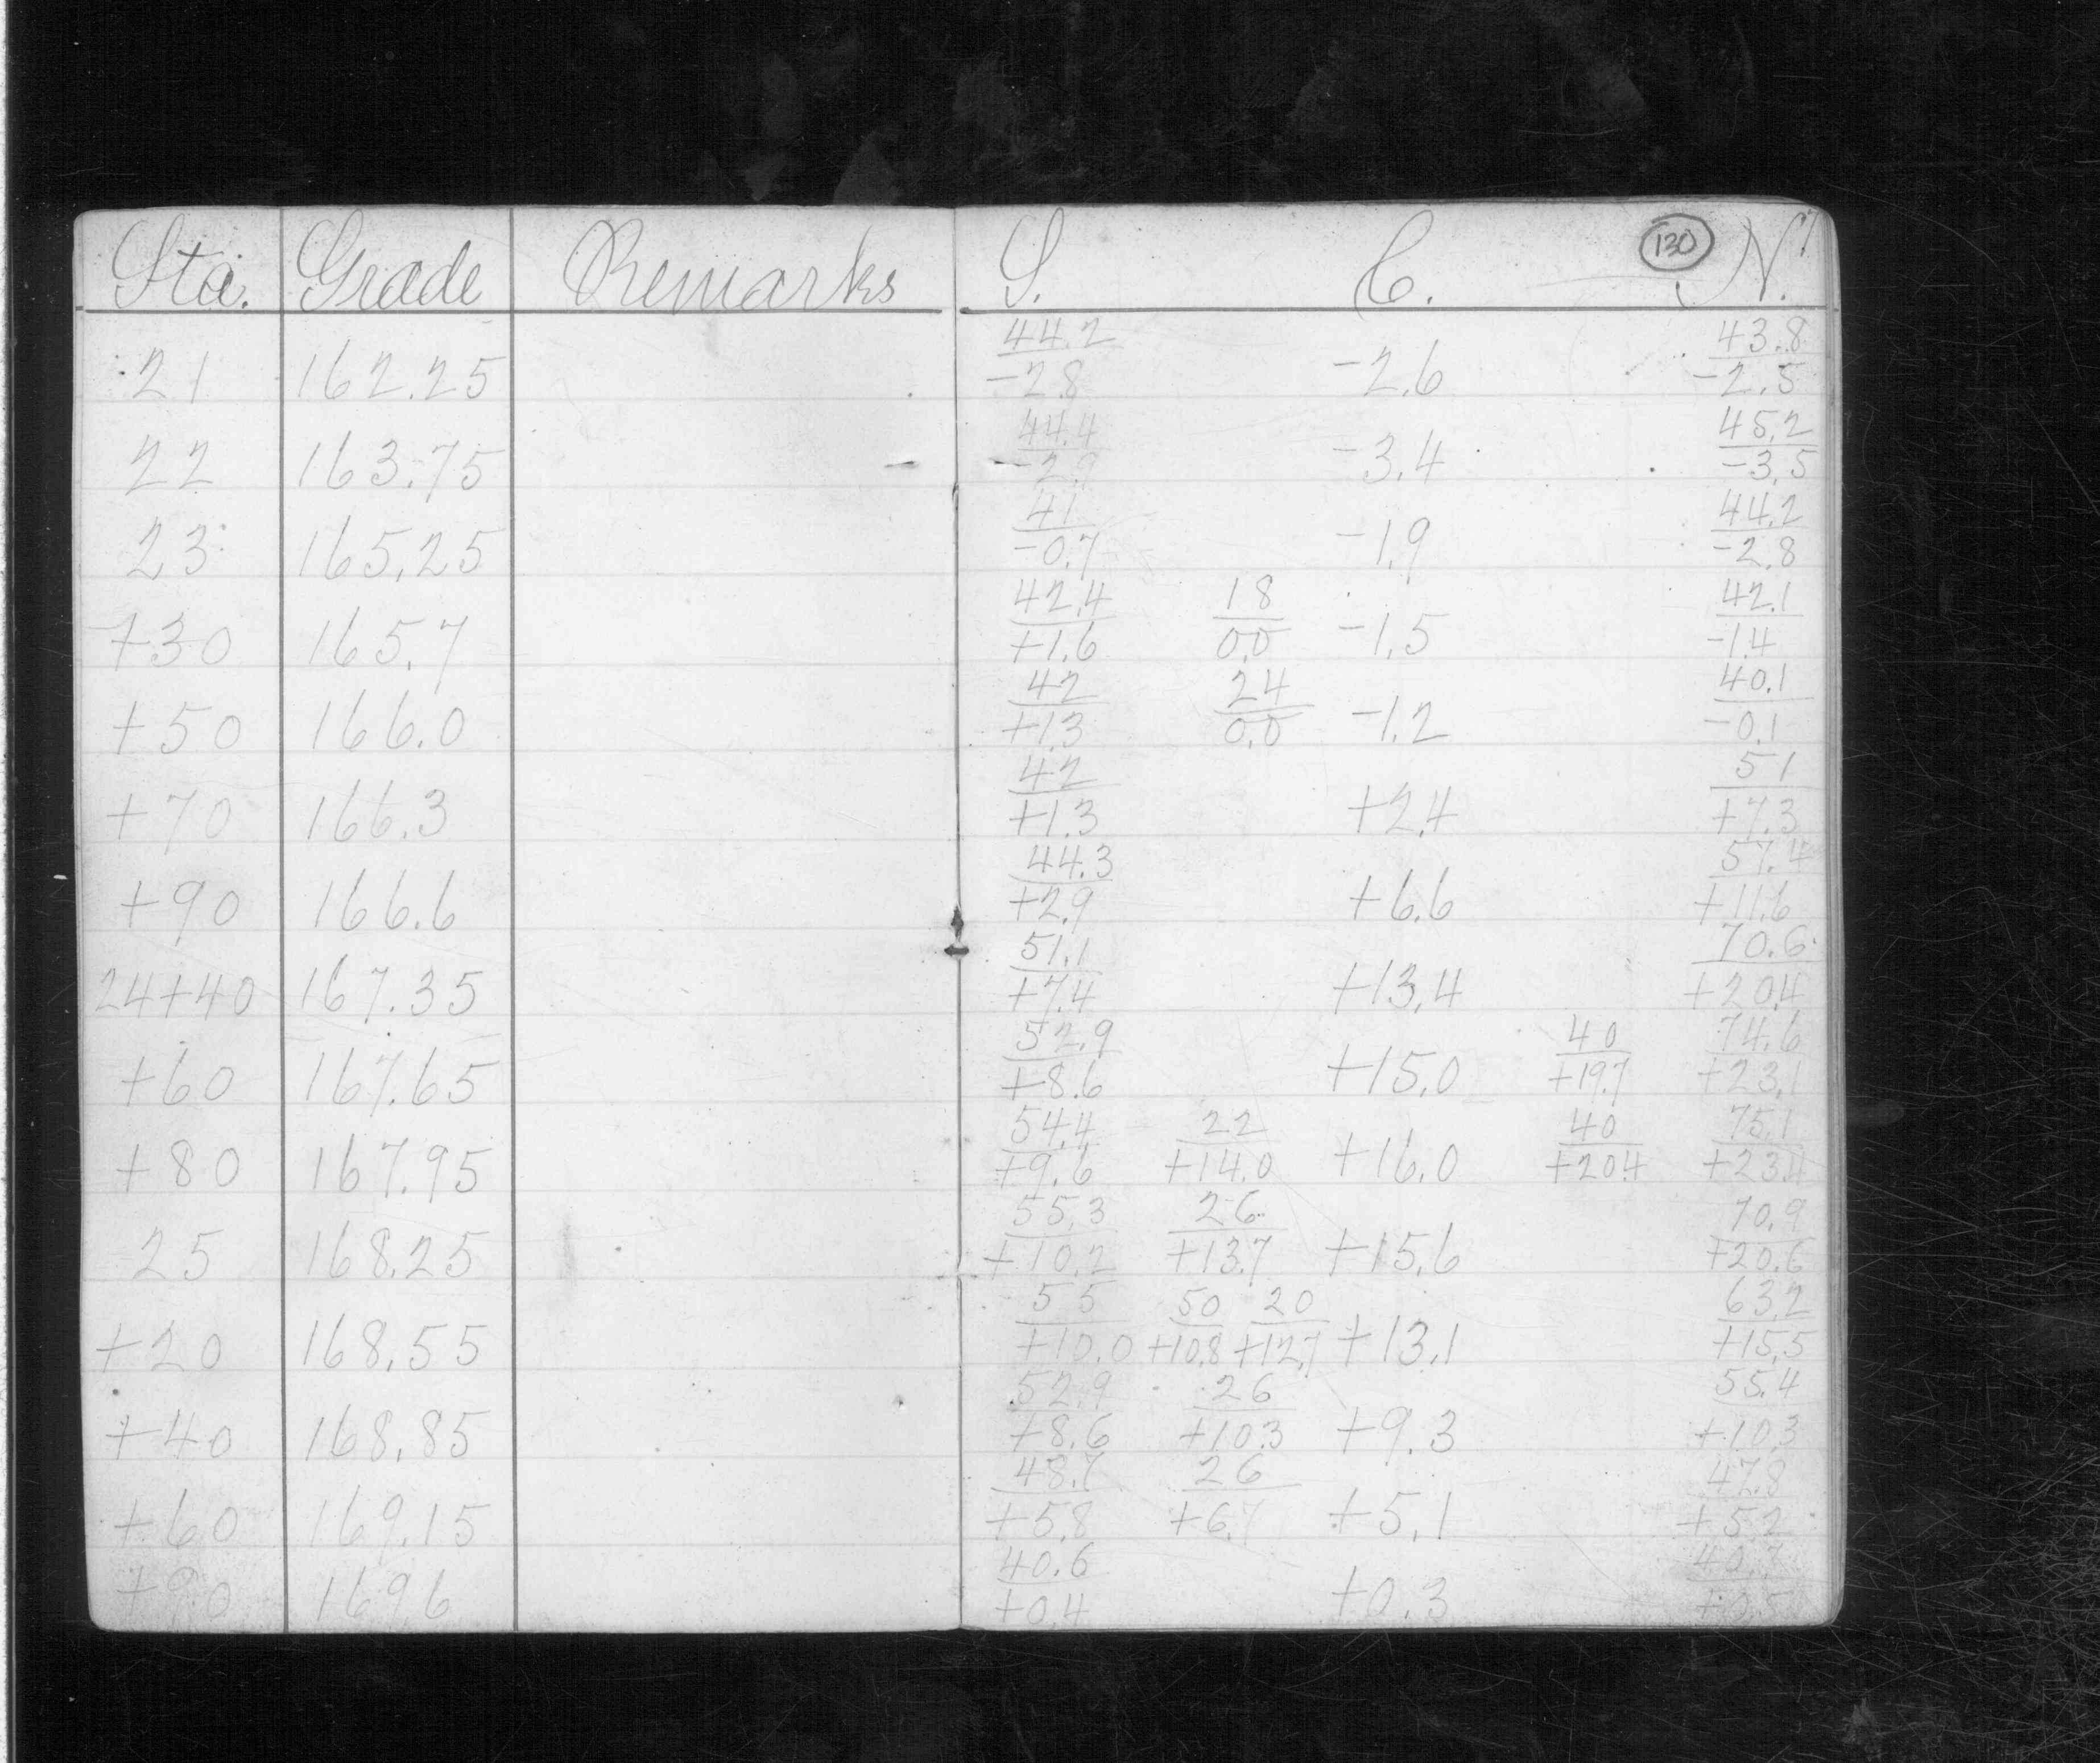 130
Sta. Grade Remarks S. C. N.
44.2 43.8
21 162.25 -2.8 -2.6 -2.5
44.4 45.2
22 163.75 -2.9 -3.4 -3.5
41 44.2
23 165.25 -0.7 -1.9 -2.8
42.4 18 42.1
+30 165.7 +1.6 0.0 -1.5 -1.4
42 24 40.1
+50 166.0 +1.3 0.0 -1.2 -0.1
42 51
+70 166.3 +1.3 +2.4 +7.3
44.3 57.4
+90 166.6 +2.9 +6.6 +11.6
51.1 70.6
24+40 167.35 +7.4 +13.4 +20.4
52.9 40 74.6
+60 167.65 +8.6 +15.0 +19.7 +23.1
54.4 22 40 75.1
+80 167.95 +9.6 +14.0 +16.0 +20.4 +23.4
55.3 26 70.9
25 168.25 +10.2 +13.7 +15.6 +20.6
55 50 20 63.2
+20 168.55 +10.0 +10.8 +12.7 +13.1 +15.5
52.9 26 55.4
+40 168.85 +8.6 +10.3 +9.3 +10.3
48.7 26 47.8
+60 169.15 +5.8 +6.7 +5.1 +5.2
40.6 40.7
+90 169.6 +0.4 +0.3 +0.5